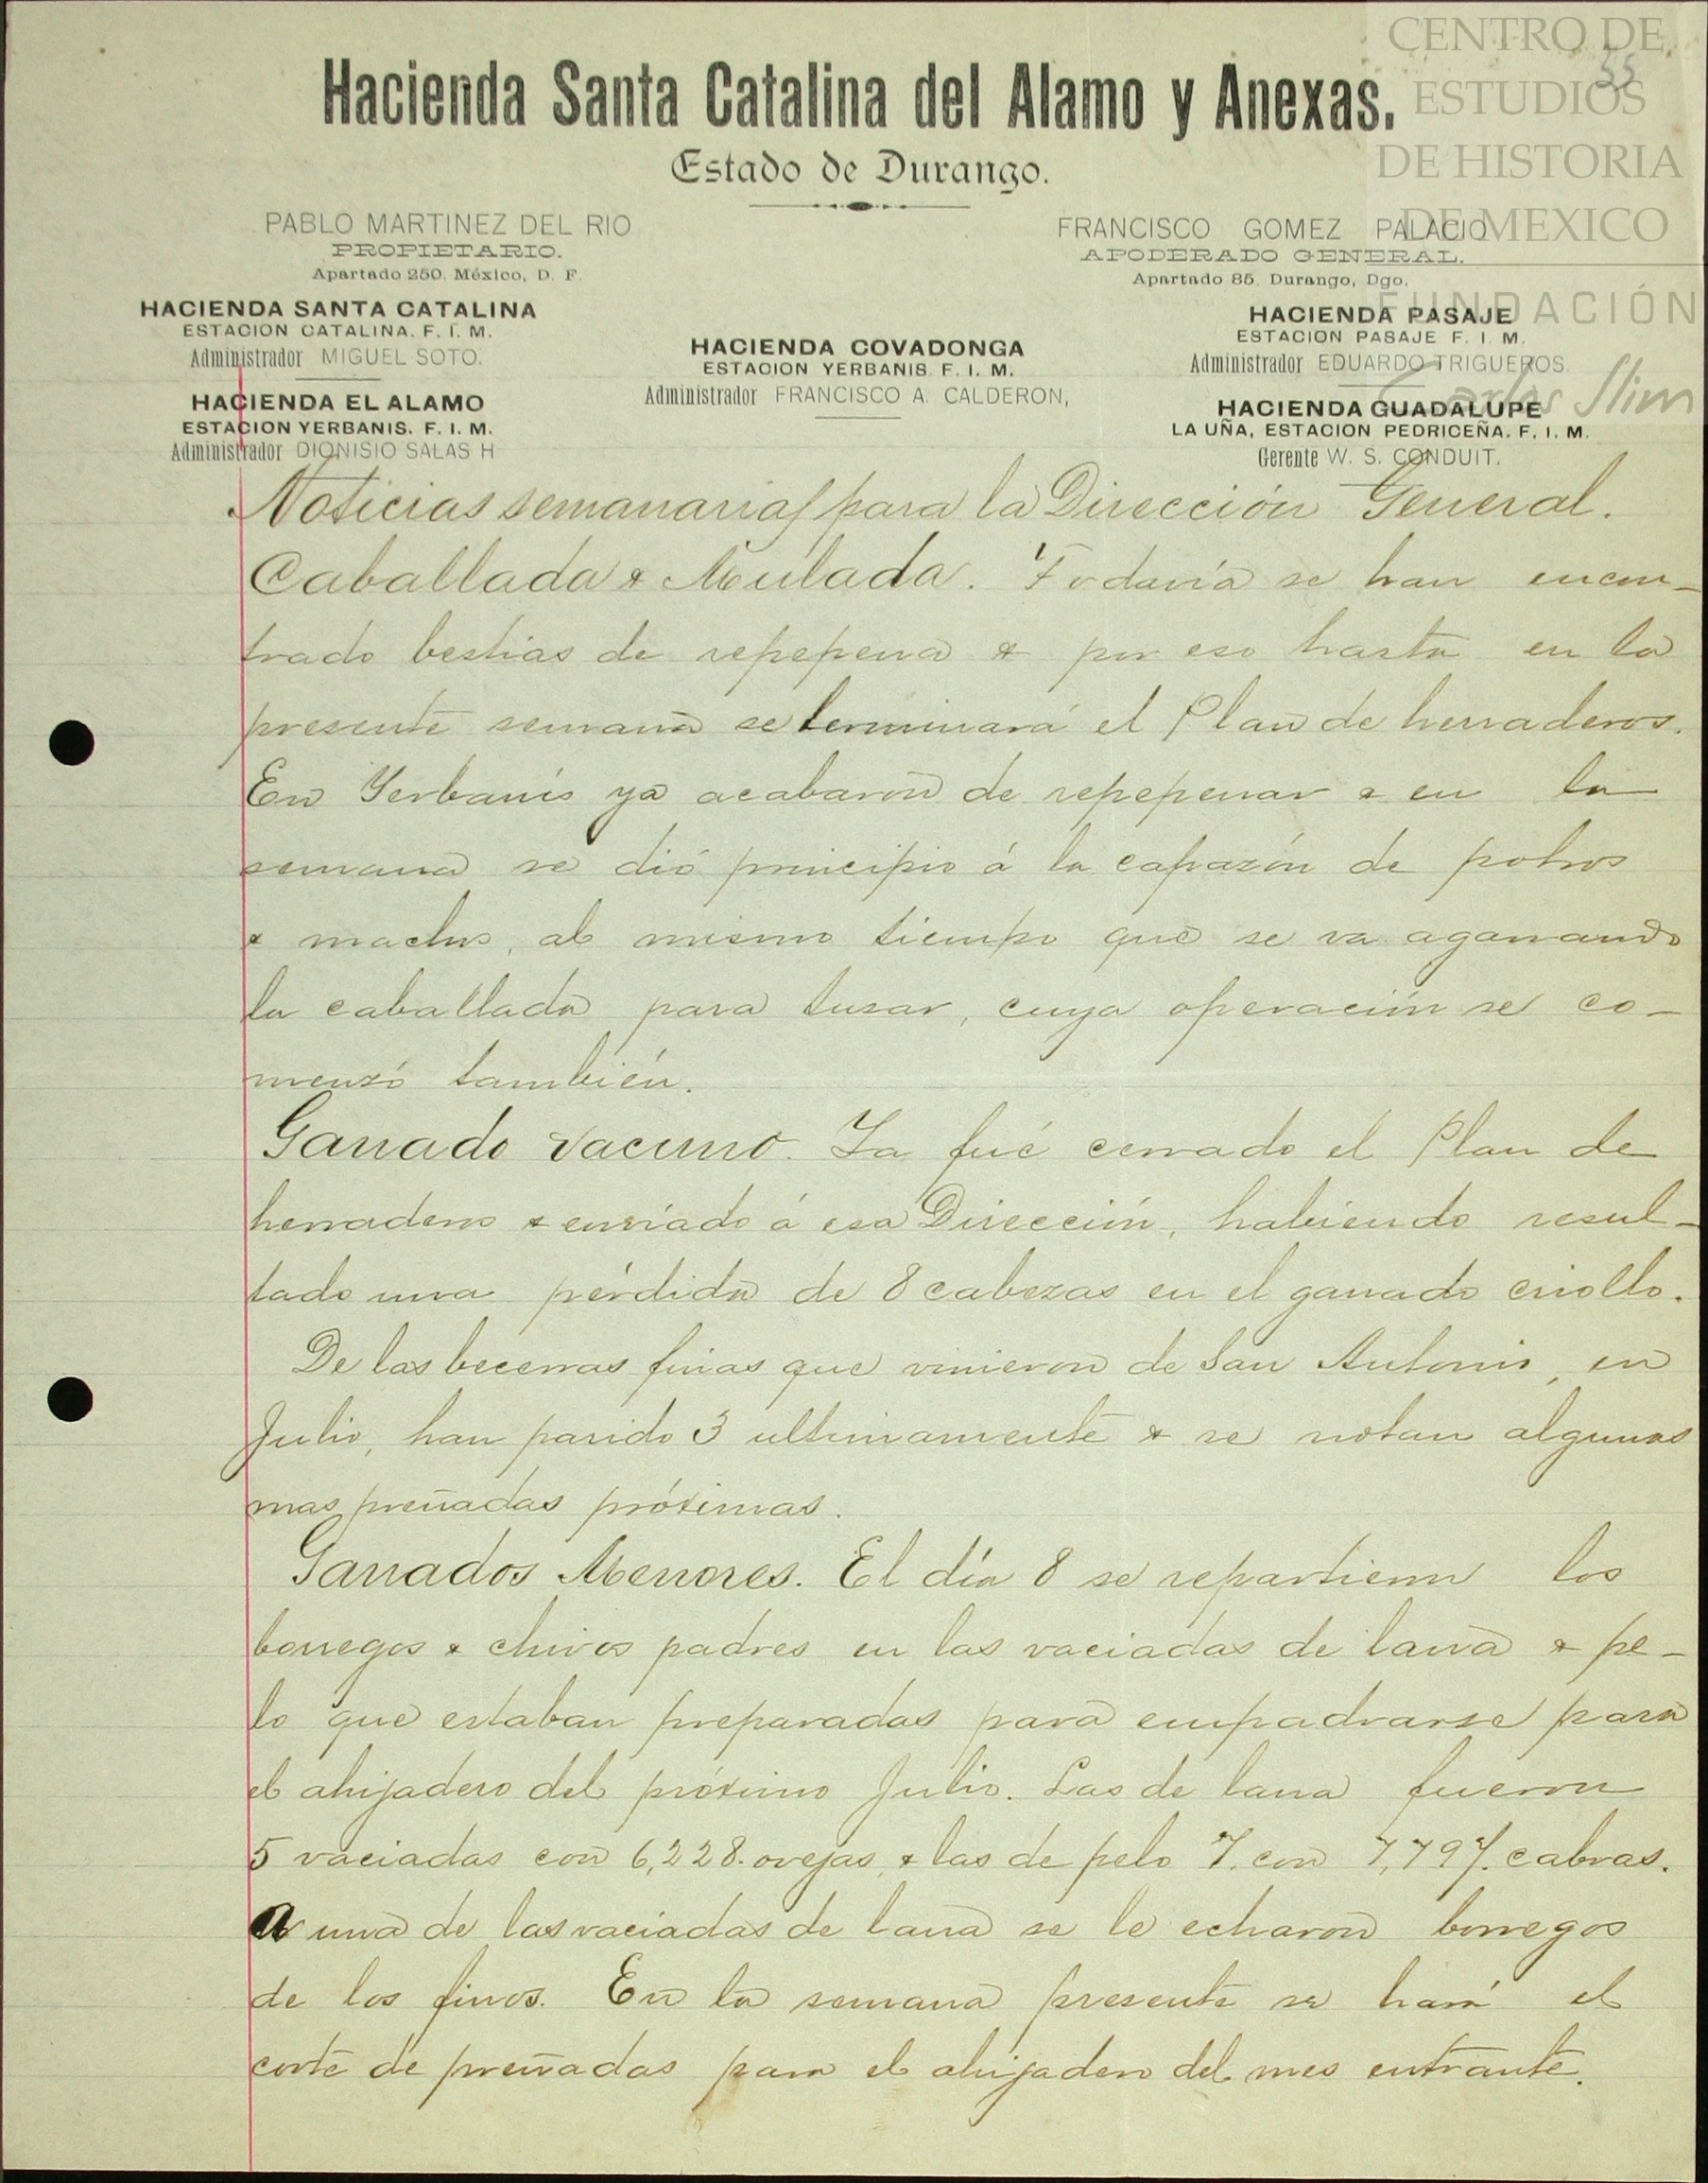 CENTRO DE
ESTUDIOS
DE HISTORIA
DE MEXICO
FUNDACIÓN
Carlos Slim
55
Hacienda Santa Catalina del Alamo y Anexas.
Estado de Durango.
PABLO MARTINEZ DEL RIO
PROPIETARIO.
Apartado 250, México, D. F.
FRANCISCO GOMEZ PALACIO
APODERADO GENERAL.
Apartado 85, Durango, Dgo.
HACIENDA SANTA CATALINA
ESTACION CATALINA. F. I. M.
Administrador MIGUEL SOTO.
HACIENDA EL ALAMO
ESTACION YERBANIS. F. I. M.
Administrador DIONISIO SALAS H
HACIENDA COVADONGA
ESTACION YERBANIS F. I. M.
Administrador FRANCISCO A. CALDERON,
HACIENDA PASAJE
ESTACION PASAJE F. I. M.
Administrador EDUARDO TRIGUEROS.
HACIENDA GUADALUPE
LA UÑA, ESTACION PEDRICEÑA. F. I. M.
Gerente W. S. CONDUIT.
Noticias semanarias para la Dirección General.
Caballada & Mulada. Todavía se han encon-
trado bestias de repepena & por eso hasta en la
presente semana se terminará el Plan de herraderos.
En Yerbanís ya acabaron de repepenar & en la
semana se dió principio á la capazón de potros
& machos, al mismo tiempo que se va agarrando
la caballada para tusar, cuya operación se co-
menzó también.
Ganado vacuno. Ya fué cerrado el Plan de
herraderos & enviado á esa Dirección, habiendo resul-
tado una pérdida de 8 cabezas en el ganado criollo.
De las becerras finas que vinieron de San Antonio, en
Julio, han parido 3 ultimamente & se notan algunas
mas preñadas próximas.
Ganados Menores. El día 8 se repartieron los
borregos & chivos padres en las vaciadas de lana & pe-
lo que estaban preparadas para empadrarse para
el ahijadero del próximo Julio. Las de lana fueron
5 vaciadas con 6,228. ovejas, & las de pelo 7. con 7,797. cabras.
A una de las vaciadas de lana se le echaron borregos
de los finos. En la semana presente se hará el
corte de preñadas para el ahijadero del mes entrante.